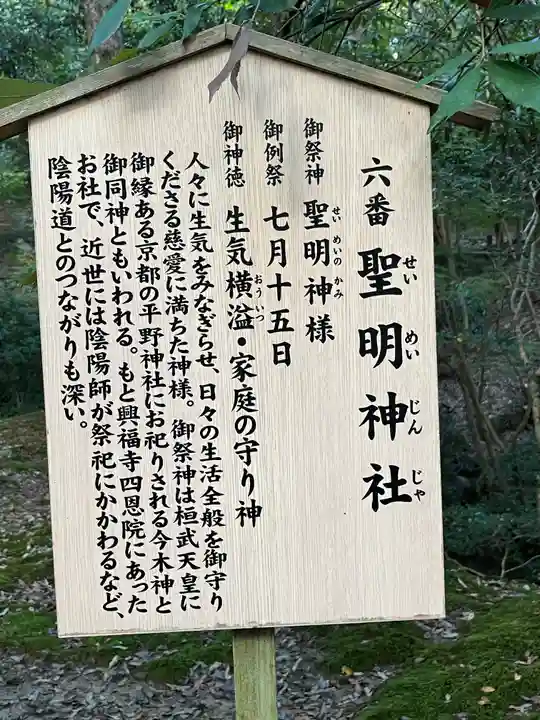 六番 聖明神社
せい めい じん じゃ
御祭神 聖明神様
せい めいの かみ
御例祭 七月十五日
御神徳 生気横溢・家庭の守り神
おう いつ
人々に生気をみなぎらせ、日々の生活全般を御守り
くださる慈愛に満ちた神様。御祭神は桓武天皇に
御縁ある京都の平野神社にお祀りされる今木神と
御同神ともいわれる。もと興福寺四恩院にあった
お社で、近世には陰陽師が祭祀にかかわるなど、
陰陽道とのつながりも深い。